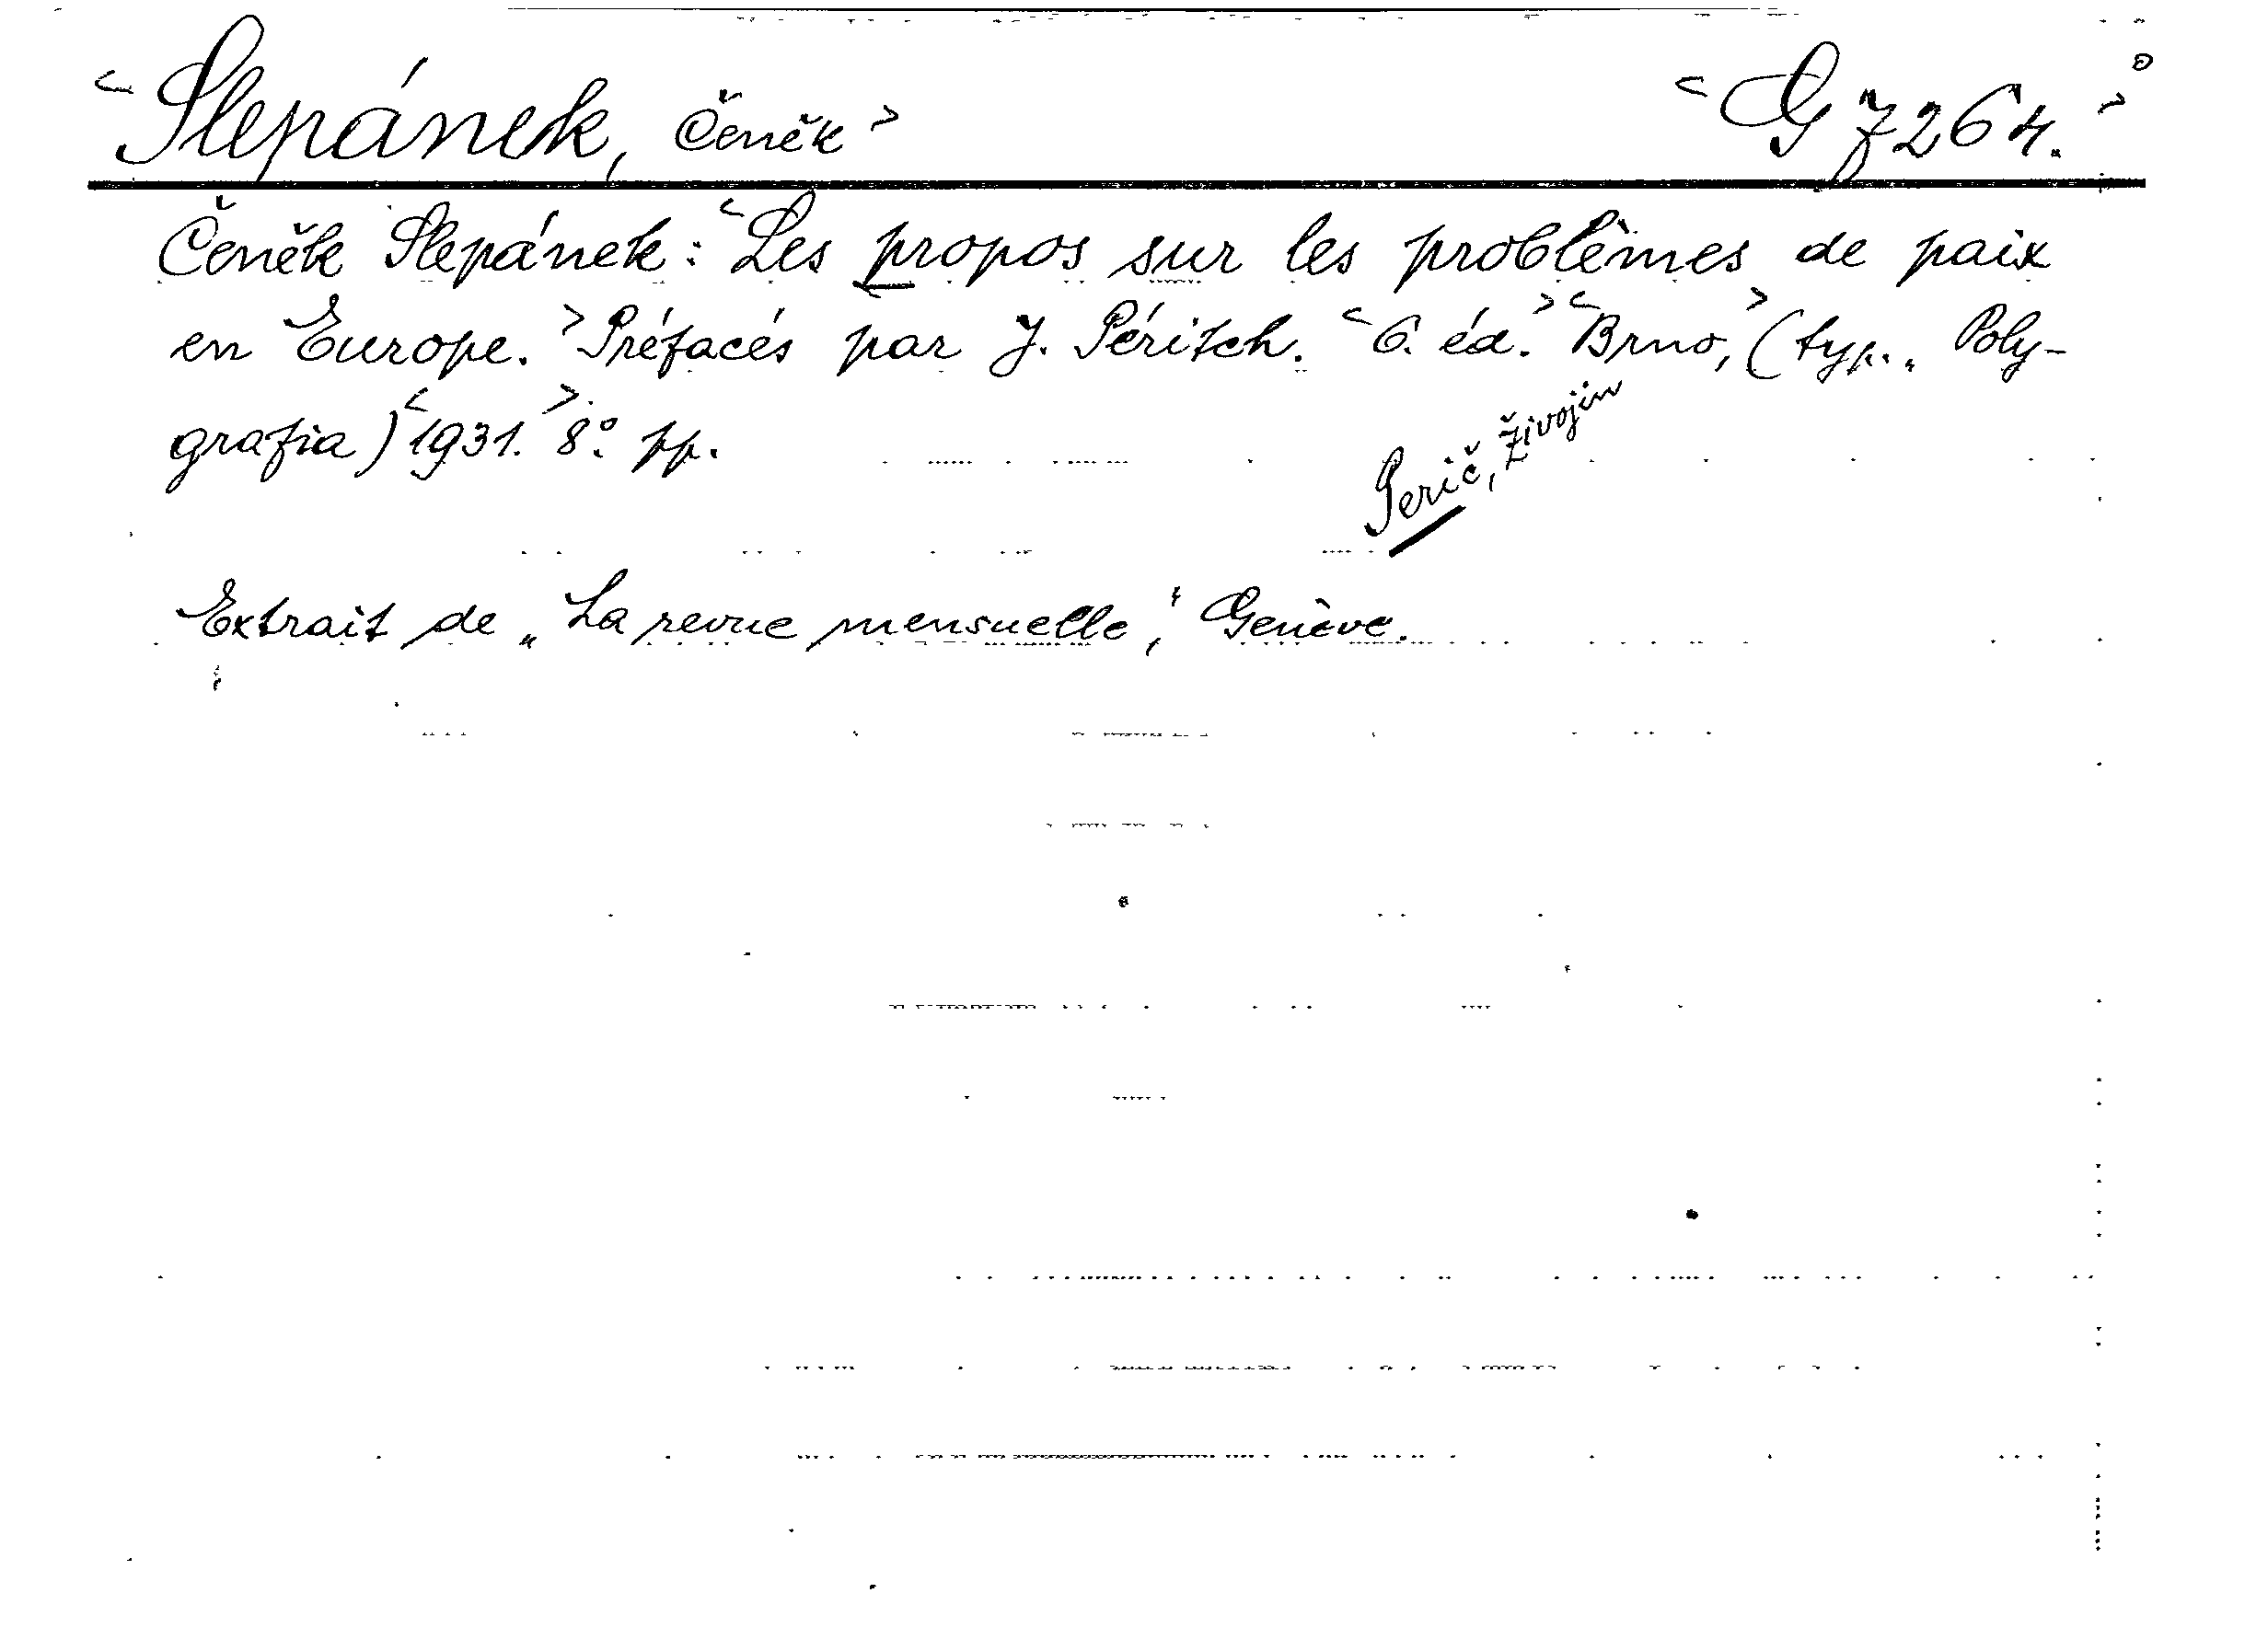 <Slepánek, Čeněk> <G 7264.>
Čeněk Slepánek: <Les propos sur les problèmes de paix
en Europe.> Préfacés par J. Péritch. <6. éd.> <Brno,> (typ. „Poly-
grafia) <1931.> 8° pp.
Perič, Živojin
Extrait de „La revue mensuelle,“ Genève.